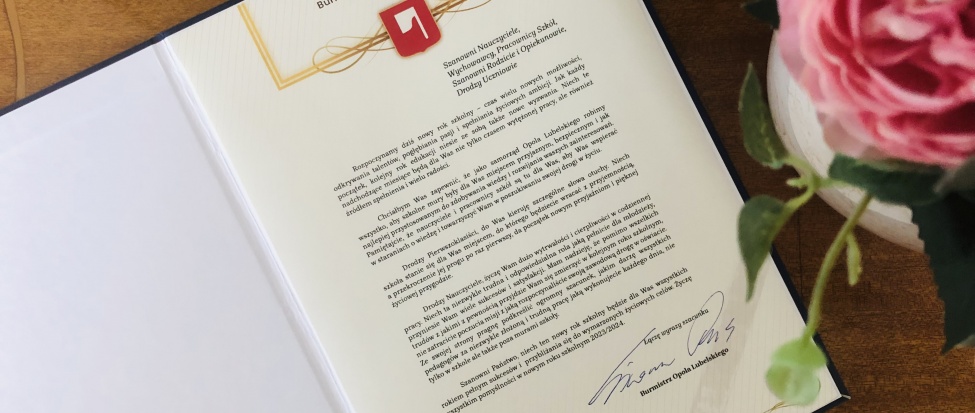 Szanowni Nauczyciele,
Wychowawcy, Pracownicy Szkół,
Szanowni Rodzice i Opiekunowie,
Drodzy Uczniowie
Rozpoczynamy dziś nowy rok szkolny – czas wielu nowych możliwości,
odkrywania talentów, pogłębiania pasji i spełniania życiowych ambicji. Jak każdy
początek, kolejny rok edukacji niesie ze sobą także nowe wyzwania. Niech te
nadchodzące miesiące będą dla Was nie tylko czasem wytężonej pracy, ale również
źródłem spełnienia i wielu radości.
Chciałbym Was zapewnić, że jako samorząd Opola Lubelskiego robimy
wszystko, aby szkolne mury były dla Was miejscem przyjaznym, bezpiecznym i jak
najlepiej przystosowanym do zdobywania wiedzy i rozwijania waszych zainteresowań.
Pamiętajcie, że nauczyciele i pracownicy szkół są tu dla Was, aby Was wspierać
w staraniach o wiedzę i towarzyszyć Wam w poszukiwaniu swojej drogi w życiu.
Drodzy Pierwszoklasiści, do Was kieruję szczególne słowa otuchy. Niech
szkoła stanie się dla Was miejscem, do którego będziecie wracać z przyjemnością,
a przekroczenie jej progu po raz pierwszy, da początek nowym przyjaźniom i pięknej
życiowej przygodzie.
Drodzy Nauczyciele, życzę Wam dużo wytrwałości i cierpliwości w codziennej
pracy. Niech ta niezwykle trudna i odpowiedzialna rola jaką pełnicie dla młodzieży,
przyniesie Wam wiele sukcesów i satysfakcji. Mam nadzieję, że pomimo wszelkich
trudów z jakimi z pewnością przyjdzie Wam się zmierzyć w kolejnym roku szkolnym,
nie zatracicie poczucia misji z jaką rozpoczynaliście swoją zawodową drogę w oświacie.
Ze swojej strony pragnę podkreślić ogromny szacunek, jakim darzę wszystkich
pedagogów za niezwykle złożoną i trudną pracę jaką wykonujecie każdego dnia, nie
tylko w szkole ale także poza murami szkoły.
Szanowni Państwo, niech ten nowy rok szkolny będzie dla Was wszystkich
rokiem pełnym sukcesów i przybliżania się do wymarzonych życiowych celów. Życzę
wszystkim pomyślności w nowym roku szkolnym 2023/2024.
Łączę wyrazy szacunku
Burmistrz Opola Lubelskiego